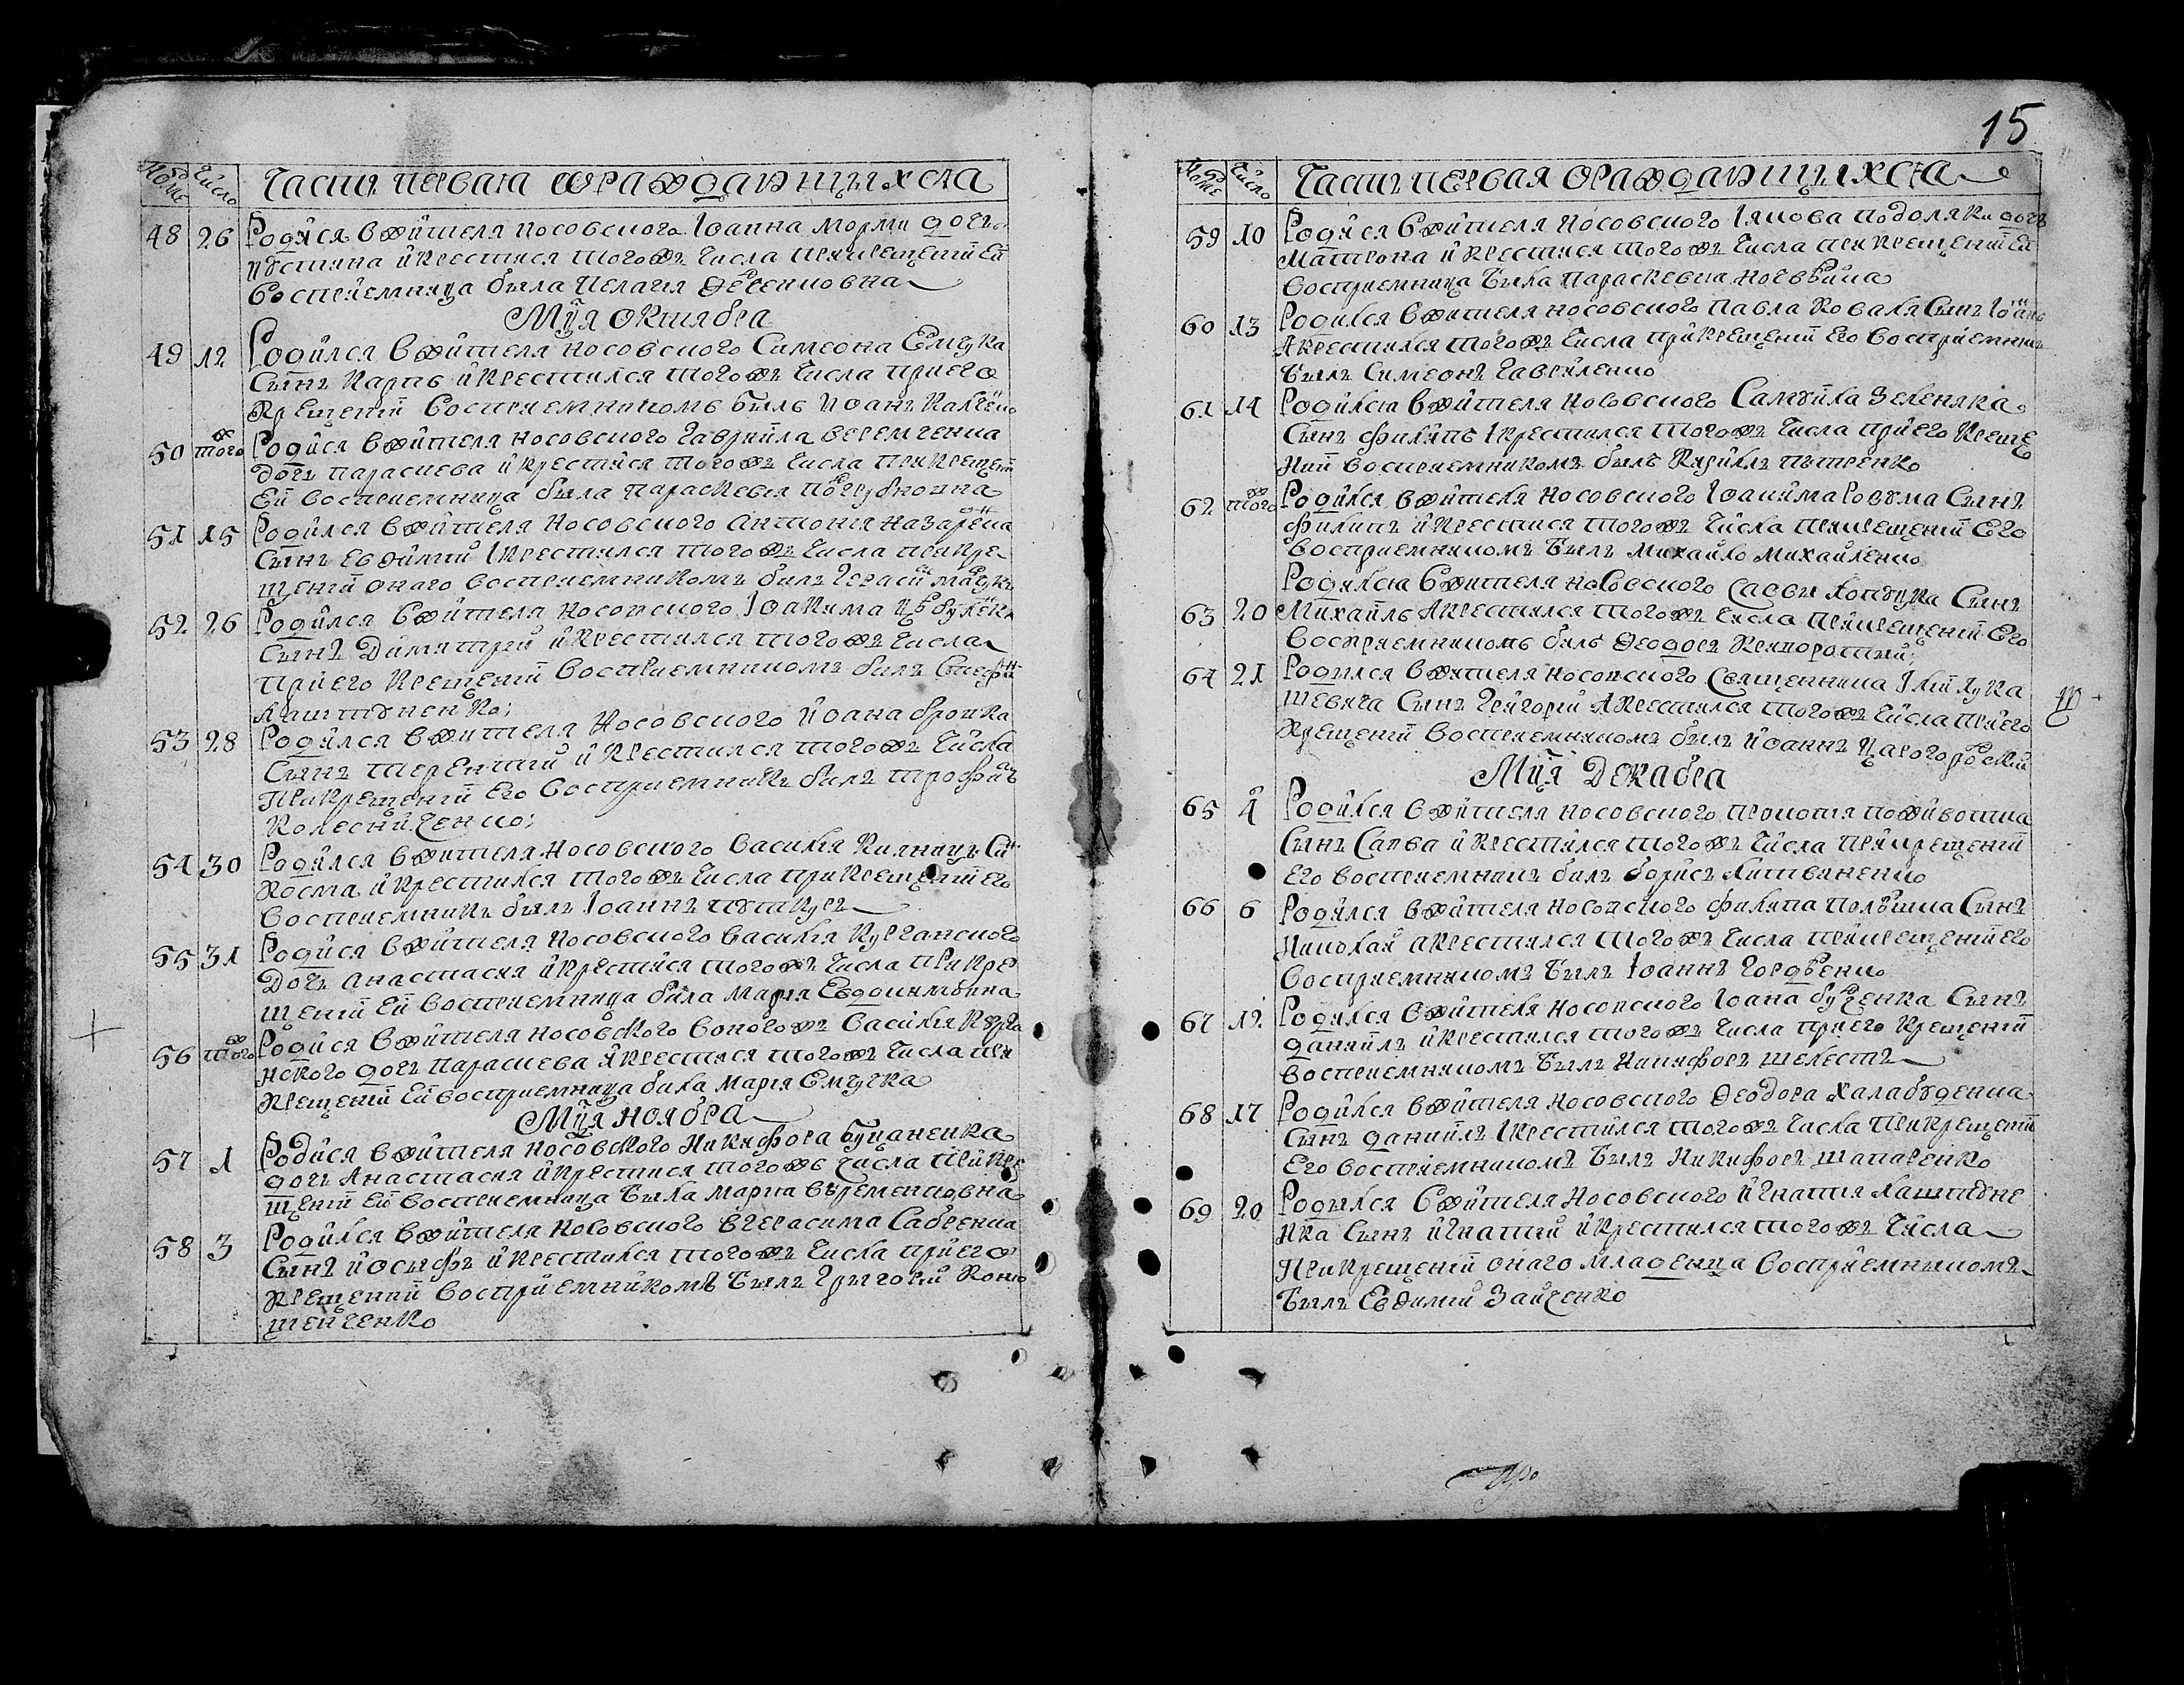 Номеръ Число Часть первая о раждающихся
48 26 Родися в жителя носовского Іоанна дочъ
Іустина и крестися того жъ числа при крещеніи ей
восприемница была Пелагія
Мця октября
49 12 Родился в жителя носовского Симеона Емцука
сынъ Карпъ и крестился того жъ числа при его
крещеніи восприемникомъ былъ Иоанъ
50 тогож Родися в жителя носовского Гаврыила Веремченка
дочъ Параскева и крестися того жъ числа при крещеніи
ей восприемница была Параскевія
51 15 Родился в жителя носовского Антонія Назаренка
сынъ Евдимий и крестился того жъ числа при кре
щеніи онаго восприемникомъ былъ Герасим
52 26 Родился в жителя носовского Іоакима
сынъ Димитрий и крестился того жъ числа
при его крещеніи восприемникомъ былъ Стефан
Лаштуненко;
53 28 Родился в жителя носовского Иоана
сынъ Терентий и крестился того жъ числа
при крещеніи его восприемникъ былъ Трофим
Колесниченко;
54 30 Родился в жителя носовского Василія сын
Косма и крестился того жъ числа при крещеніи его
восприемникъ былъ Іоаннъ
55 31 Родися в жителя носовского Василія Курганского
дочъ Анастасия и крестися того жъ числа при кре
щеніи ей восприемница была Марія
56 тогож Родися в жителя носовского в оного жъ Василія Курга
нского дочъ Параскева и крестися того жъ числа при
крещеніи ей восприемница была Марія Емцучка
Мця ноября
57 1 Родися в жителя носовского Никифора Буцаненка
дочъ Анастасия и крестися того жъ числа при кре
щеніи ей восприемница была Мария
58 3 Родился в жителя носовского в Герасима Сабренка
сынъ Иосыфъ и крестился того жъ числа при его
крещеніи восприемникомъ былъ Григорий Коно
щенченко
15
Номеръ Число Часть первая о раждающихся
59 10 Родися в жителя носовского Іякова Подоляки дочъ
Матрона и крестися того жъ числа при крещеніи ей
восприемница была Параскевия
60 13 Родился в жителя носовского Павла Коваля сынъ Іоанъ
и крестился того жъ числа при крещеніи его восприемникъ
былъ Симеонъ Гавриленко
61 14 Родился в жителя носовского Самуйла Зеленяка
сынъ Филипъ и крестился того жъ числа при его креще
нии восприемникомъ былъ Кирилъ Петренко
62 тогож Родился в жителя носовского сынъ
Филипъ и крестися того жъ числа при крещеніи его
восприемникомъ былъ Михайло Михайленко
63 20 Родился в жителя носовского Саввы сынъ
Михаилъ и крестился того жъ числа при крещеніи его
восприемникомъ былъ Феодоръ
64 21 Родился в жителя носовского священника Іліи Лука
шевича сынъ Григорій и крестился того жъ числа при его
крещеніи восприемникомъ былъ Иоаннъ Царогородский
Мця декабра
65 4 Родился в жителя носовского Прокопія
сынъ Савва и крестился того жъ числа при крещеніи
его восприемникъ былъ Борисъ Литвиненко
66 6 Родился в жителя носовского Филипа сынъ
Николай а крестился того жъ числа при крещеніи его
восприемникомъ былъ Іоаннъ Гордѣенко
67 12 Родился в жителя носовского Іоана сынъ
Даниилъ и крестился того жъ числа при его крещении
восприемникомъ былъ Никифоръ Шелестъ
68 17 Родился в жителя носовского Феодора Халабуденка
сынъ Даниилъ и крестился того жъ числа при крещеніи
его восприемникомъ былъ Никифоръ Шапаренко
69 20 Родился в жителя носовского Игнатия Лаштуне
нка сынъ Игнатий и крестился того жъ числа
при крещеніи онаго младенца восприемникомъ
былъ Евдимий Зайченко